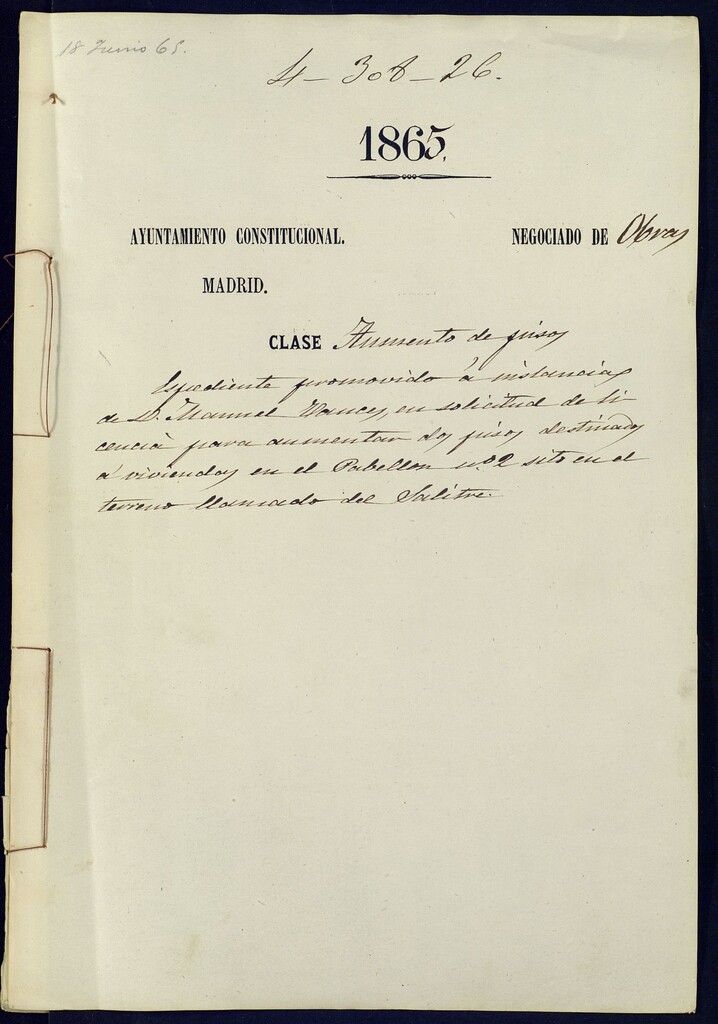 18 Junio 65.
4-308-26.
1865.
AYUNTAMIENTO CONSTITUCIONAL.
NEGOCIADO DE Obras
MADRID.
CLASE Aumento de pisos
Espediente promovido á instancias
de D. Manuel en solicitud de li-
cencia para aumentar dos pisos destinados
á viviendas en el Pabellon nº 2 sito en el
terreno llamado del Salitre.